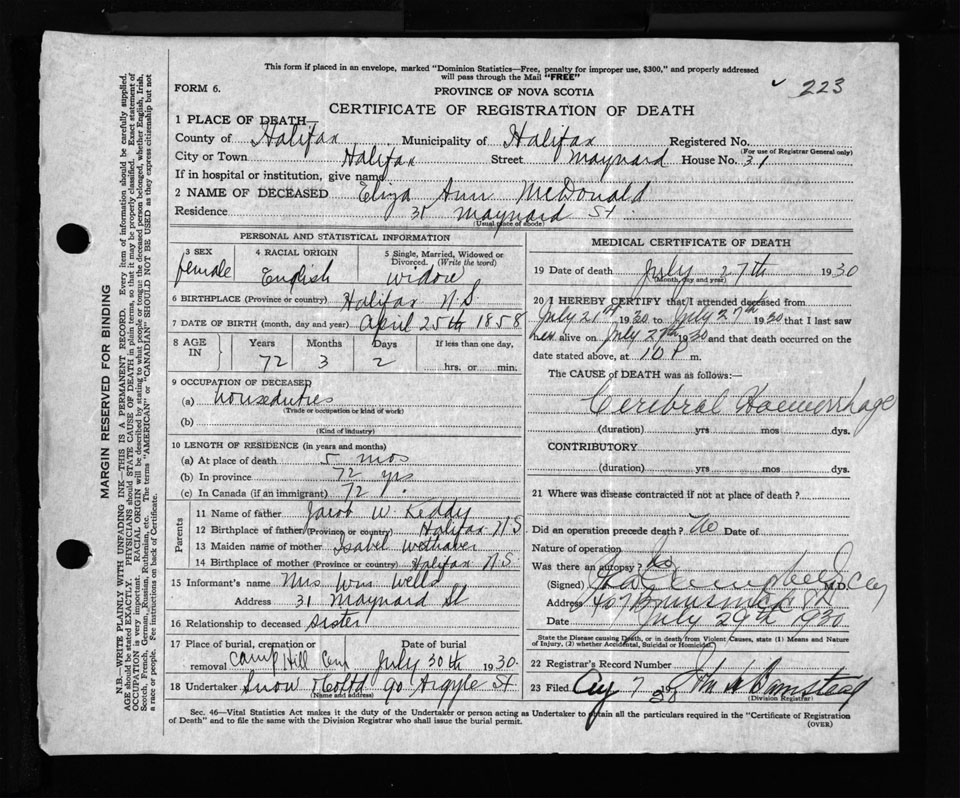 This form if placed in an envelope, marked "Dominion Statistics—Free, penalty for improper use, $300," and properly addressed
will pass through the Mail "FREE"
223
FORM 6.
PROVINCE OF NOVA SCOTIA
CERTIFICATE OF REGISTRATION OF DEATH
1 PLACE OF DEATH
County of Halifax Municipality of Halifax Registered No.
(For use of Registrar General only)
City or Town Halifax Street Maynard House No. 31
If in hospital or institution, give name
2 NAME OF DECEASED Eliza Ann McDonald
Residence 31 Maynard St.
(Usual place of abode)
PERSONAL AND STATISTICAL INFORMATION
3 SEX female
4 RACIAL ORIGIN English
5 Single, Married, Widowed or Divorced. (Write the word) widow
6 BIRTHPLACE (Province or country) Halifax N.S.
7 DATE OF BIRTH (month, day and year) April 25th 1858
8 AGE IN Years Months Days If less than one day,
72 3 2 hrs. or min.
9 OCCUPATION OF DECEASED
(a) houseduties
(Trade or occupation or kind of work)
(b)
(Kind of industry)
10 LENGTH OF RESIDENCE (in years and months)
(a) At place of death 5 mos
(b) In province 72 yrs
(c) In Canada (if an immigrant) 72
Parents
11 Name of father Jacob W. Keddy
12 Birthplace of father (Province or country) Halifax N.S
13 Maiden name of mother Isabel
14 Birthplace of mother (Province or country) Halifax N.S
15 Informant's name Mrs Wm Wells
Address 31 Maynard St
16 Relationship to deceased sister
17 Place of burial, cremation or removal Camp Hill Cem
Date of burial July 30th 1930
18 Undertaker Snow & Co Ltd 90 Argyle St
(Name and address)
MEDICAL CERTIFICATE OF DEATH
19 Date of death July 27th 1930
(Month, day and year)
20 I HEREBY CERTIFY that I attended deceased from
July 21st 1930 to July 27th 1930 that I last saw
her alive on July 27th 1930 and that death occurred on the
date stated above, at 10 P m.
The CAUSE of DEATH was as follows:—
Cerebral Haemorrhage
(duration) yrs mos dys.
CONTRIBUTORY
(duration) yrs mos dys.
21 Where was disease contracted if not at place of death?
Did an operation precede death? No Date of
Nature of operation
Was there an autopsy? No
(Signed) M.D.
Address 407 Brunswick St
Date July 29th 1930
State the Disease causing Death, or in death from Violent Causes, state (1) Means and Nature
of Injury, (2) whether Accidental, Suicidal or Homicidal.
22 Registrar's Record Number
23 Filed Aug 7 1930
(Division Registrar)
Sec. 46—Vital Statistics Act makes it the duty of the Undertaker or person acting as Undertaker to obtain all the particulars required in the "Certificate of Registration
of Death" and to file the same with the Division Registrar who shall issue the burial permit.
(OVER)
MARGIN RESERVED FOR BINDING
N.B.—WRITE PLAINLY WITH UNFADING INK—THIS IS A PERMANENT RECORD. Every item of information should be carefully supplied.
AGE should be stated EXACTLY. PHYSICIANS should STATE CAUSE OF DEATH in plain terms, so that it may be properly classified. Exact statement of
OCCUPATION is very important. RACIAL ORIGIN will be described by stating to what people or tongue the deceased person belonged, whether English, Irish,
Scotch, French, German, Russian, Ruthenian, etc. The terms "AMERICAN" or "CANADIAN" SHOULD NOT BE USED as they express citizenship but not
a race or people. See instructions on back of Certificate.